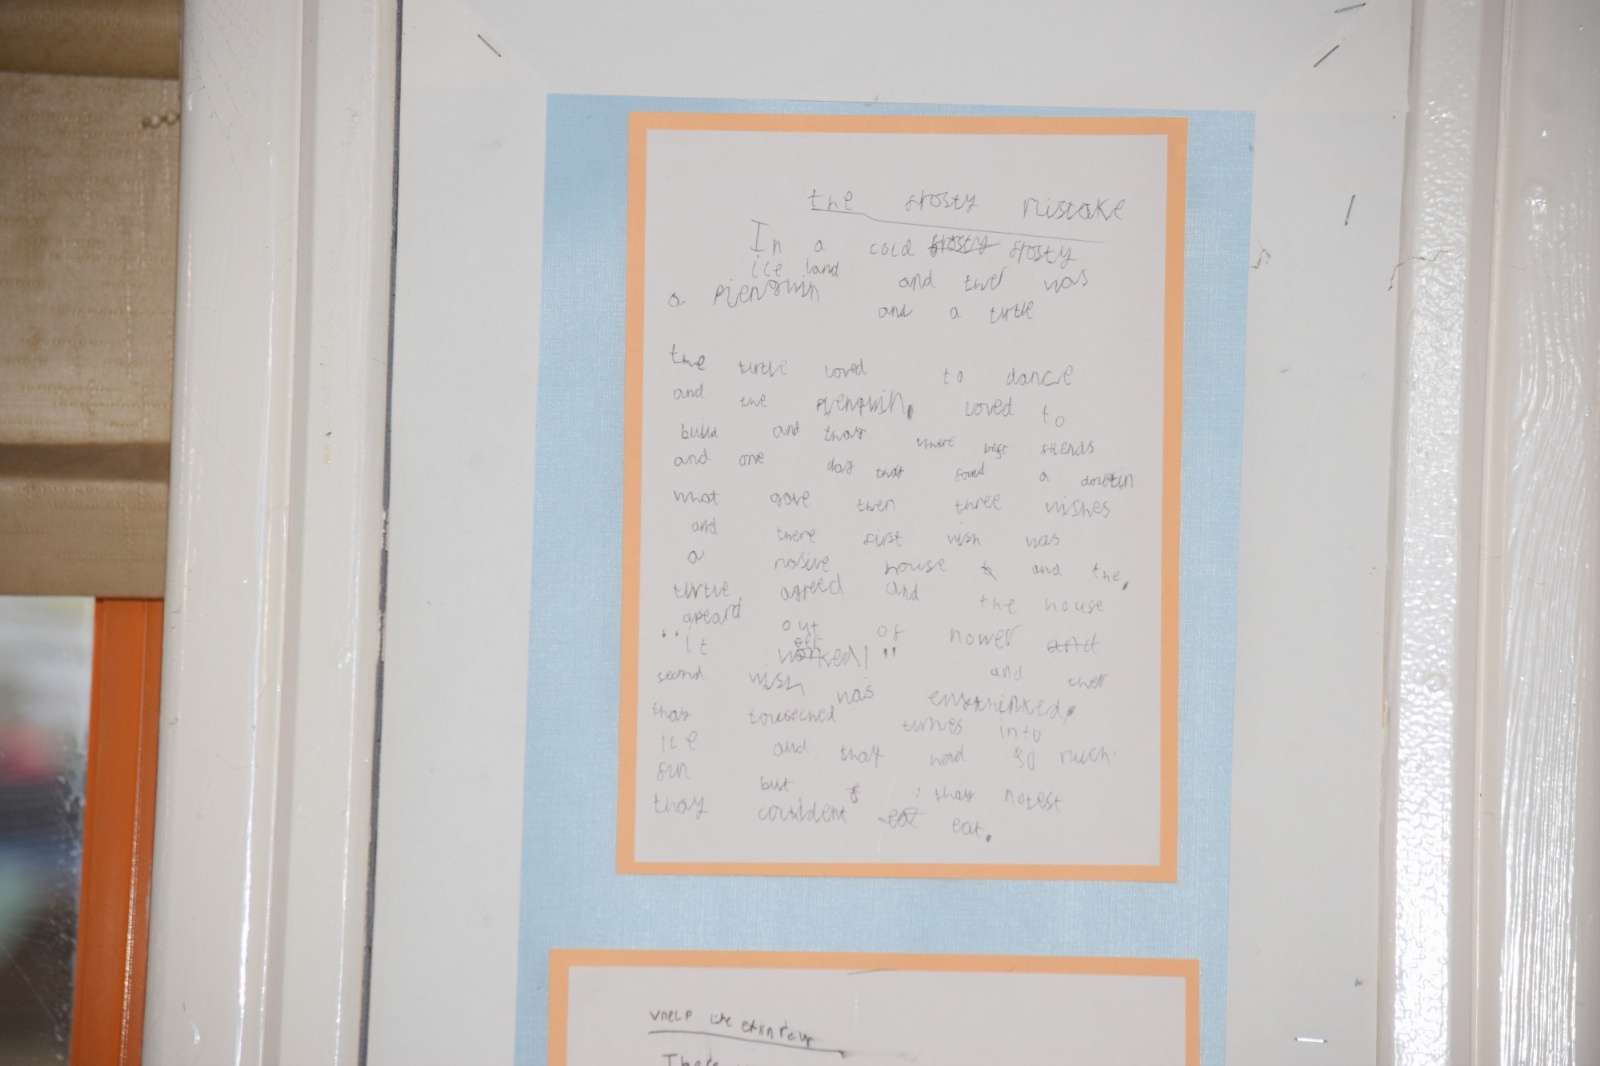 the frosty mistake
In a cold frosty frosty
ice land and ther was
a pienguin and a turtle
the turtle loved to dance
and the pienguin, loved to
build and thay were best friends
and one day thay found a
what gave then three wishes
and there first wish was
a house and the,
turtle agreed and the house
apeard out of nower and
"it worked!"
second wish was and ther
thay touseched turnes into
ice and thay had so much
fun but thay notest
thay couldent eat eat.
There